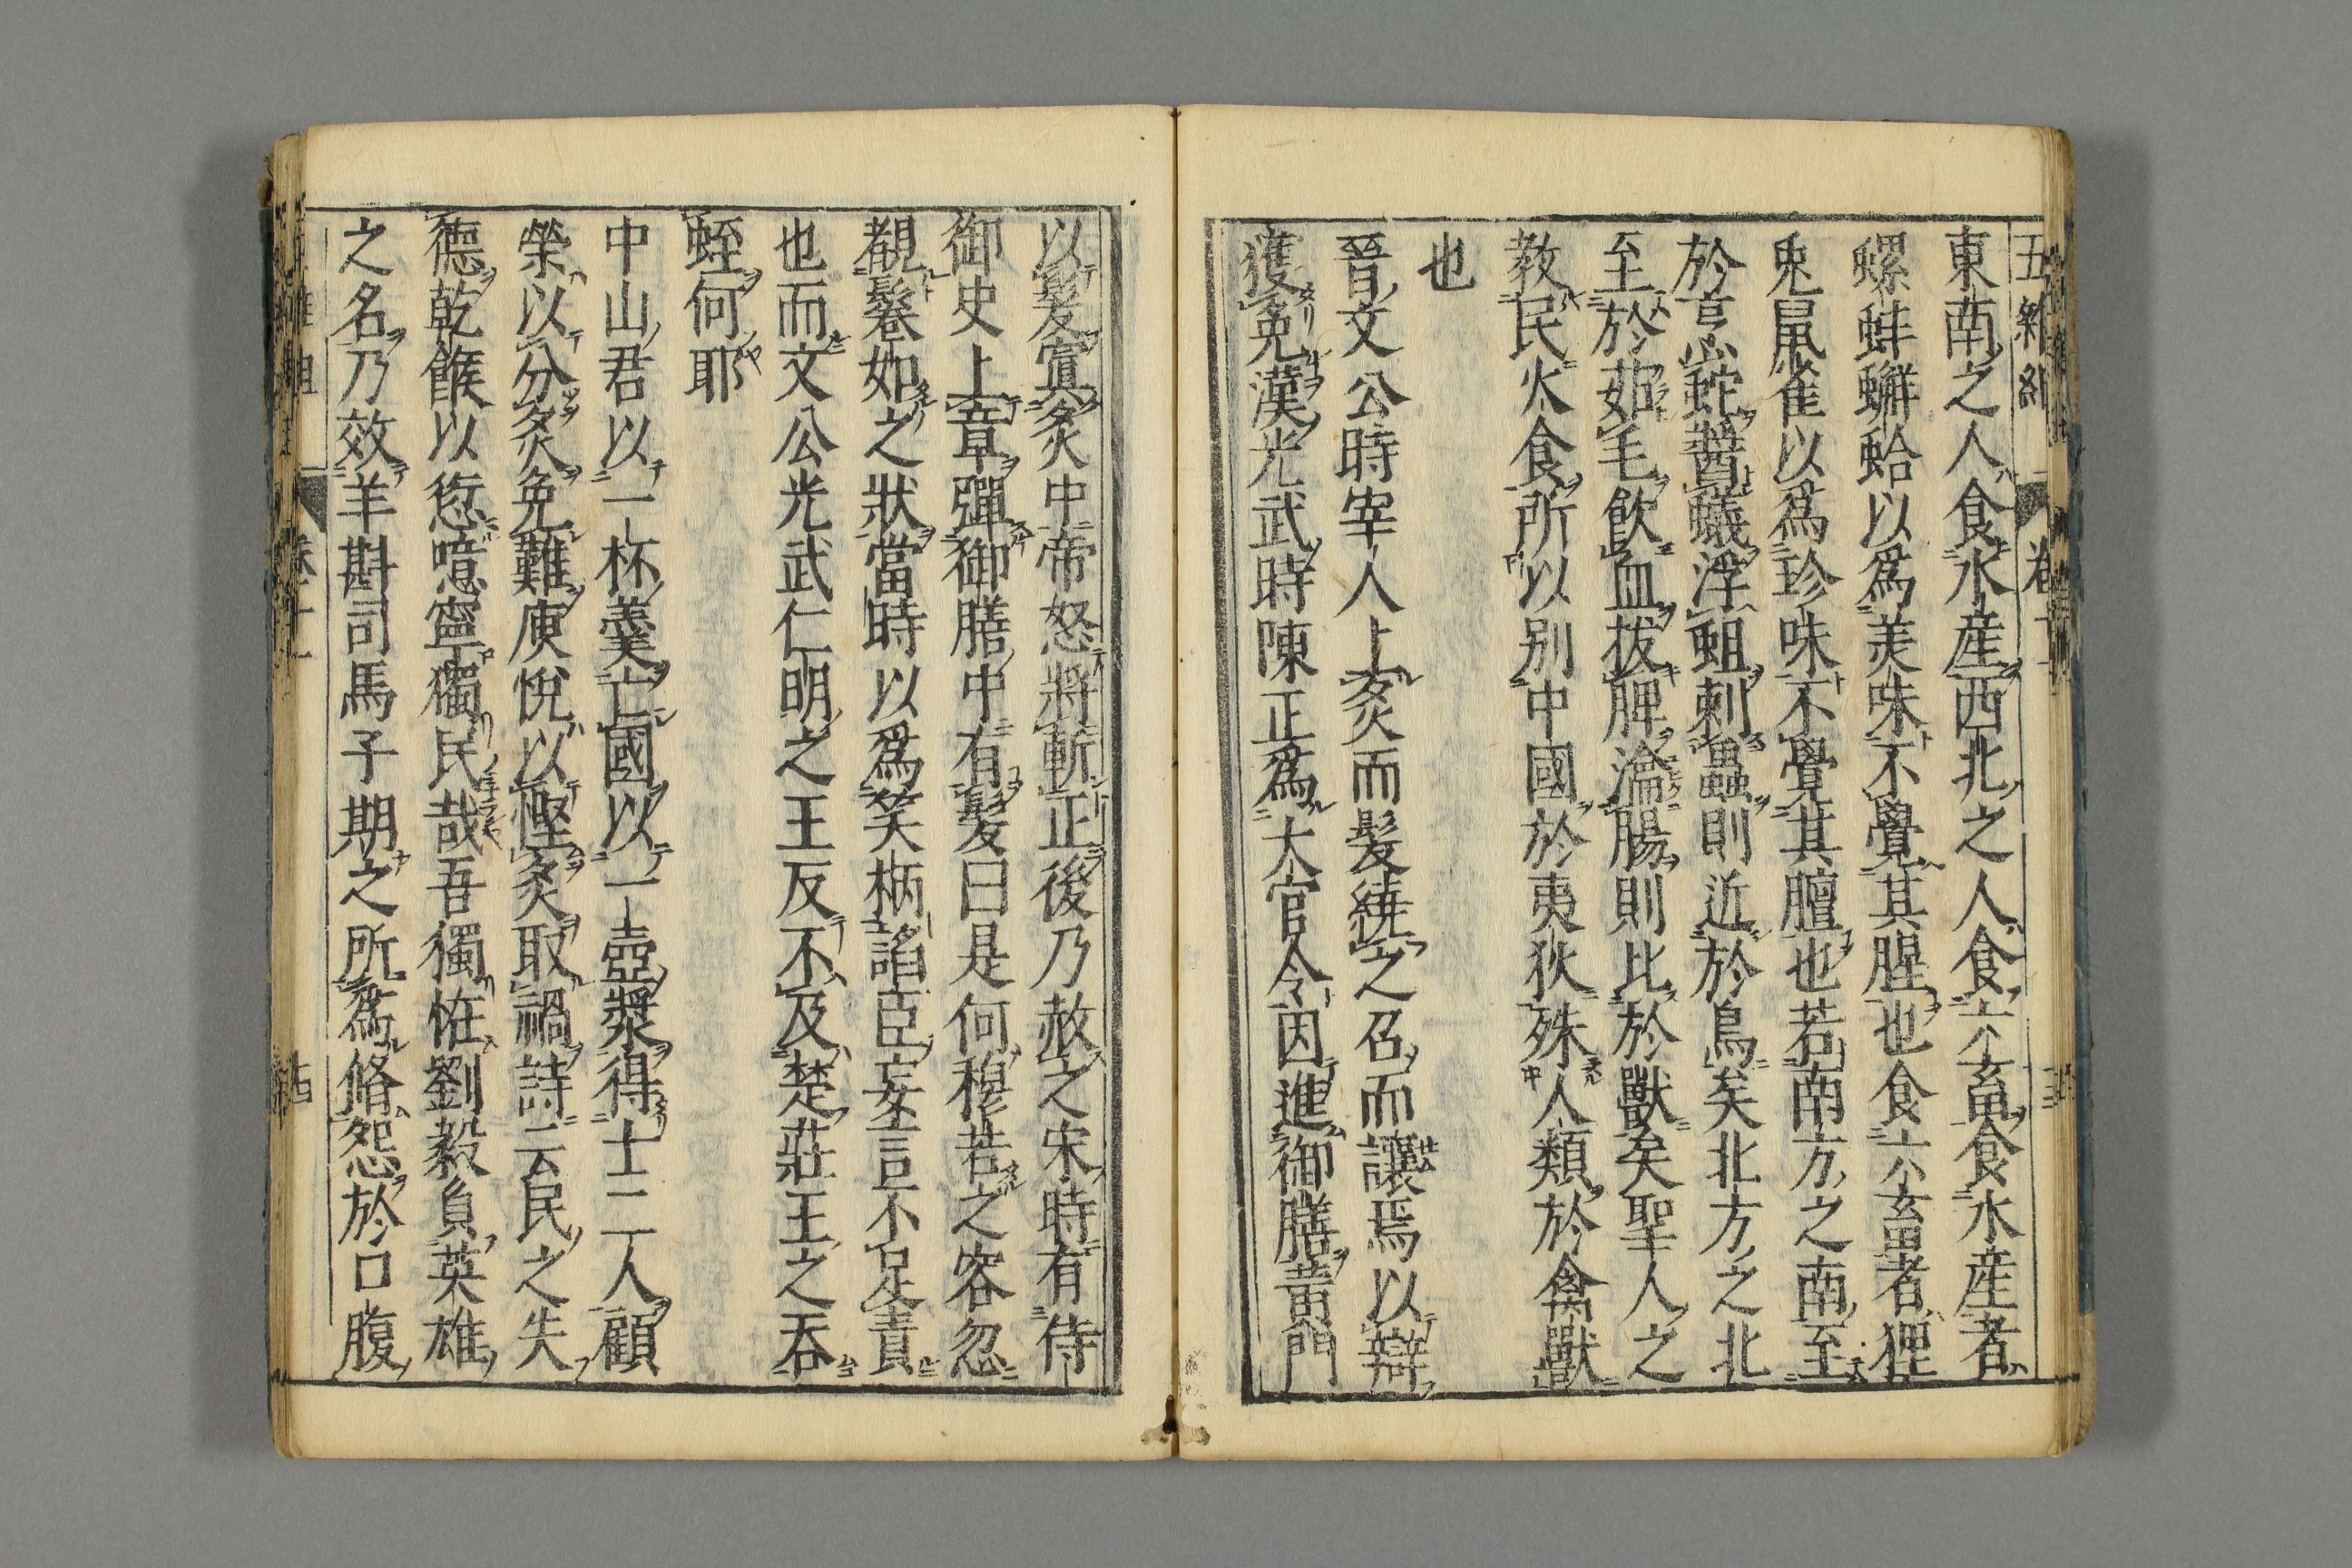 五雜組 卷十一
東南之人食水產西北之人食六畜食水產者
螺蚌蠏蛤以爲美味不覺其腥也食六畜者狸
兎鼠雀以爲珍味不覺其膻也若南方之南至
於烹蛇醬蟻浮蛆刺蟲則近於鳥矣北方之北
至於茹毛飲血拔脾淪腸則比於獸矣聖人之
教民火食所以別中國於夷狄殊人類於禽獸
也
晉文公時宰人上炙而髮繞之召而讓焉以辯
獲免漢光武時陳正爲大官令因進御膳黃門
以髮寘炙中帝怒將斬正後乃赦之宋時有侍
御史上章彈御膳中有髮曰是何穆若之容忽
覩鬈如之狀當時以爲笑柄諂臣妄言不足責
也而文公光武仁明之王反不及楚莊王之吞
蛭何耶
中山君以一杯羹亡國以一壺漿得士二人顧
榮以分炙免難庾悅以慳炙取禍詩云民之失
德乾餱以愆噫寧獨民哉吾獨恠劉毅負英雄
之名乃效羊斟司馬子期之所爲脩怨於口腹